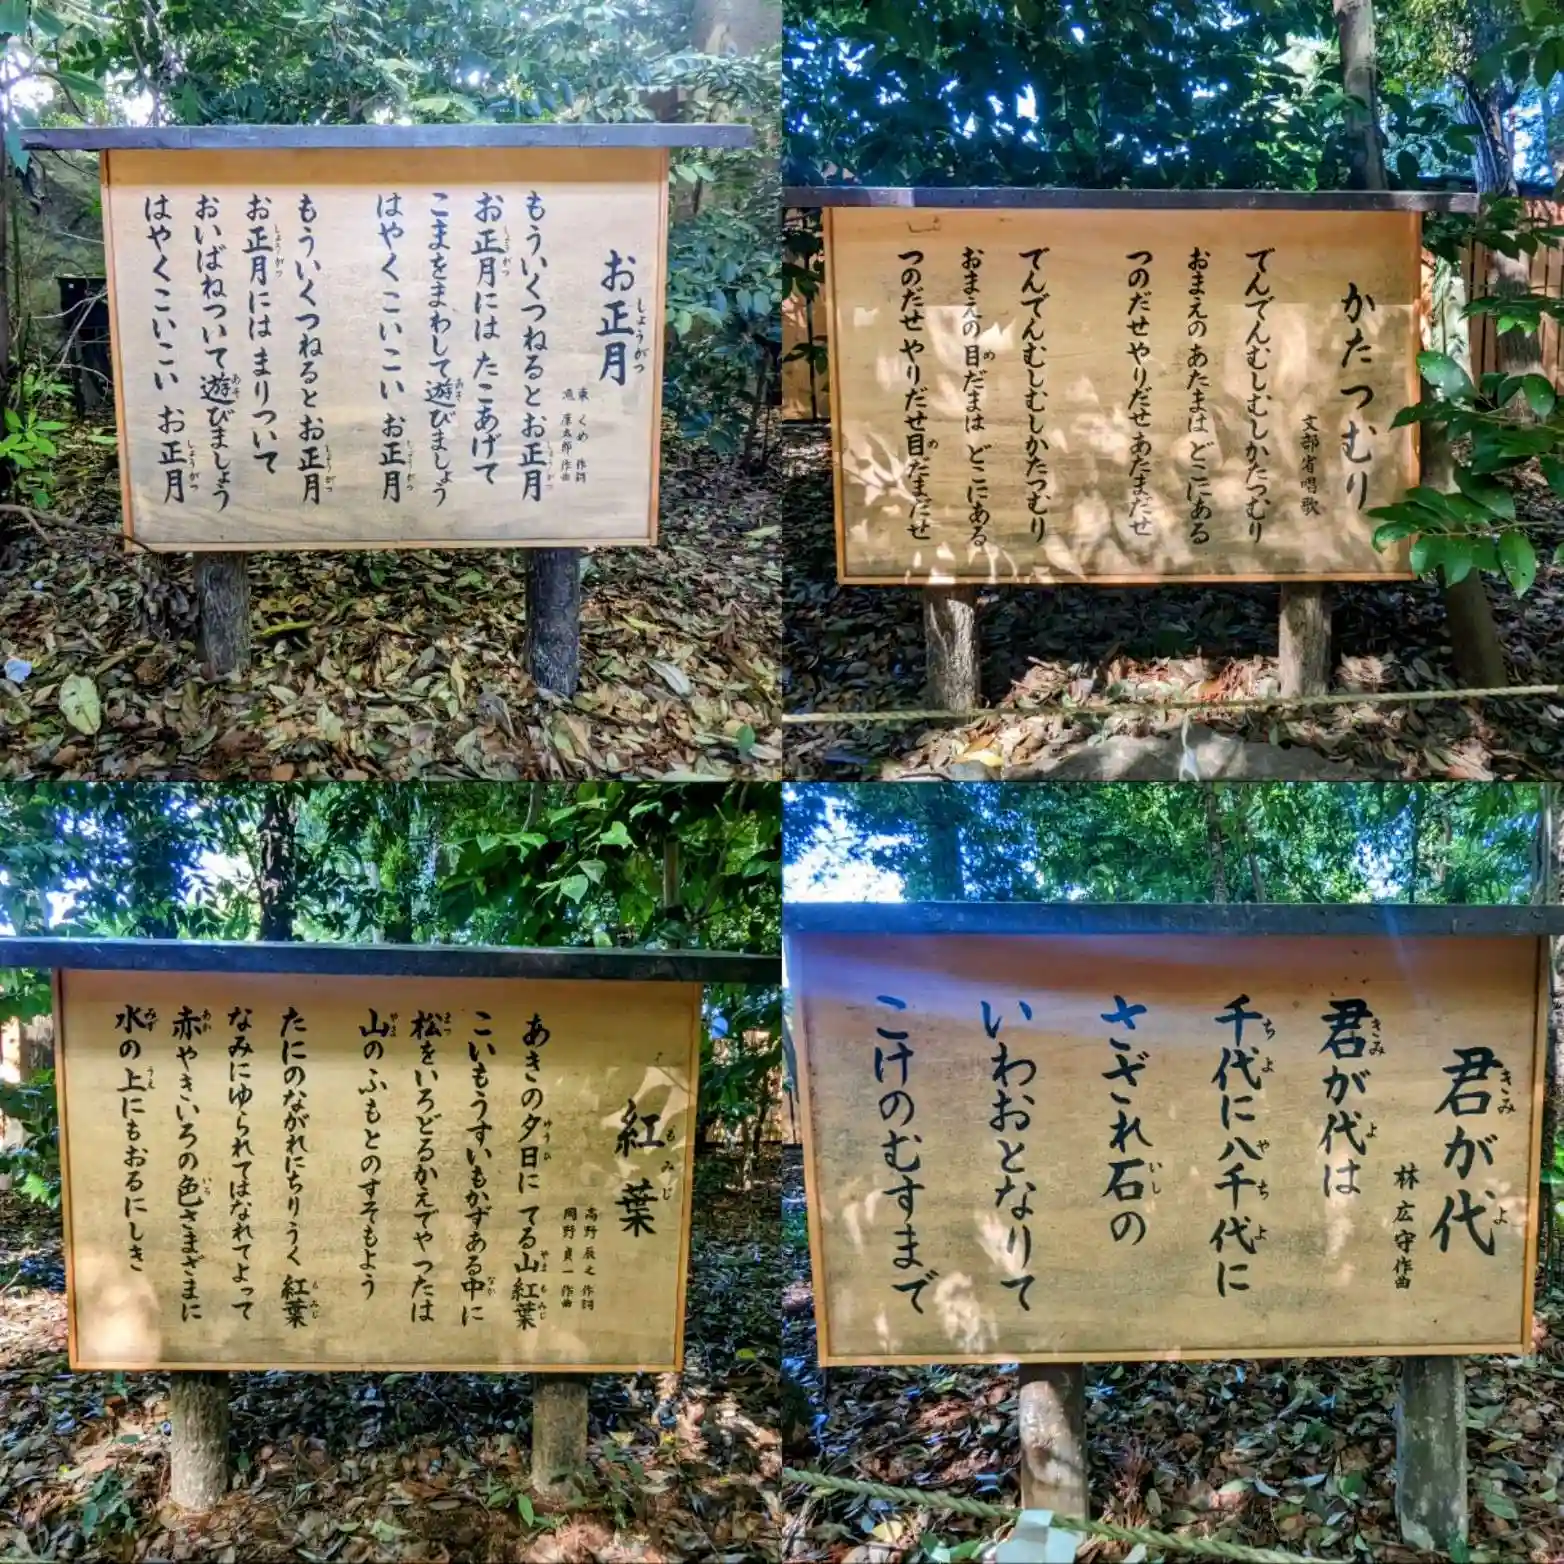 お正月
しょうがつ
東 くめ 作詞
滝 廉太郎 作曲
もういくつねるとお正月
しょうがつ
お正月には たこあげて
しょうがつ
こまをまわして遊びましょう
あそ
はやくこいこい お正月
しょうがつ
もういくつねるとお正月
しょうがつ
お正月には まりついて
しょうがつ
おいばねついて遊びましょう
あそ
はやくこいこい お正月
しょうがつ
かたつむり
文部省唱歌
でんでんむしむしかたつむり
おまえの あたまは どこにある
つのだせ やりだせ あたまだせ
でんでんむしむしかたつむり
おまえの目だまは どこにある
め
つのだせ やりだせ 目だまだせ
め
紅葉
もみじ
高野 辰之 作詞
岡野 貞一 作曲
あきの夕日に てる山紅葉
ゆうひ やま もみじ
こいもうすいもかずある中に
なか
松をいろどるかえでやつたは
まつ
山のふもとのすそもよう
やま
たにのながれにちりうく 紅葉
もみじ
なみにゆられてはなれてよって
赤やきいろの色さまざまに
あか いろ
水の上にもおるにしき
みず うえ
君が代
きみ よ
林 広守 作曲
君が代は
きみ よ
千代に八千代に
ちよ やちよ
さざれ石の
いし
いわおとなりて
こけのむすまで